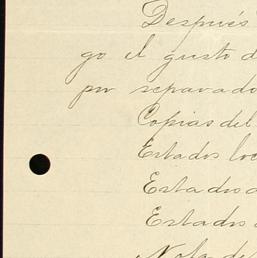 Después
go el gusto d
por separado
Copias del
Estados loc
Estados d
Estados
Nota de